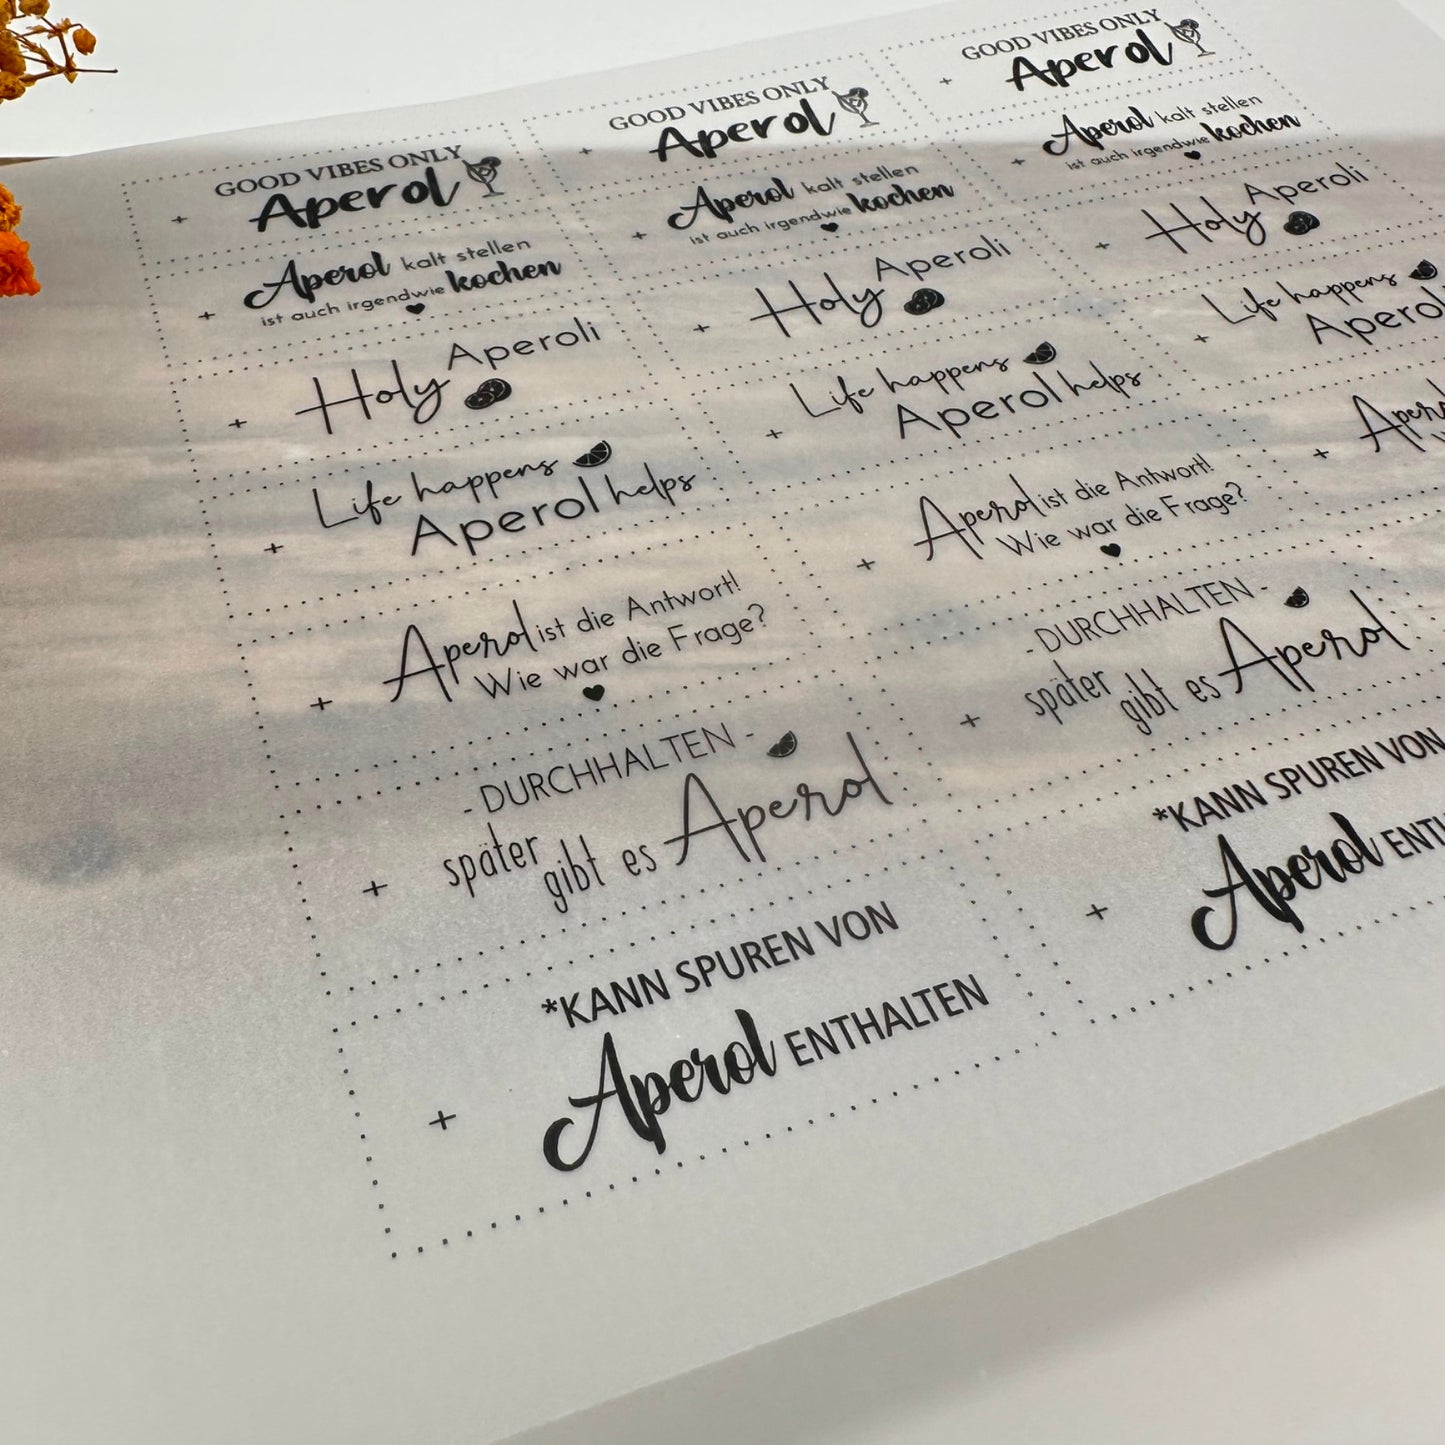 GOOD VIBES ONLY
Aperol
Aperol kalt stellen
ist auch irgendwie kochen
Holy Aperoli
Life happens
Aperol helps
Aperol ist die Antwort!
Wie war die Frage?
- DURCHHALTEN -
später gibt es Aperol
*KANN SPUREN VON
Aperol ENTHALTEN
GOOD VIBES ONLY
Aperol
Aperol kalt stellen
ist auch irgendwie kochen
Holy Aperoli
Life happens
Aperol helps
Aperol ist die Antwort!
Wie war die Frage?
- DURCHHALTEN -
später gibt es Aperol
*KANN SPUREN VON
Aperol
GOOD VIBES ONLY
Aperol
Aperol kalt stellen
ist auch irgendwie kochen
Holy Aperoli
Life happens
Aperol